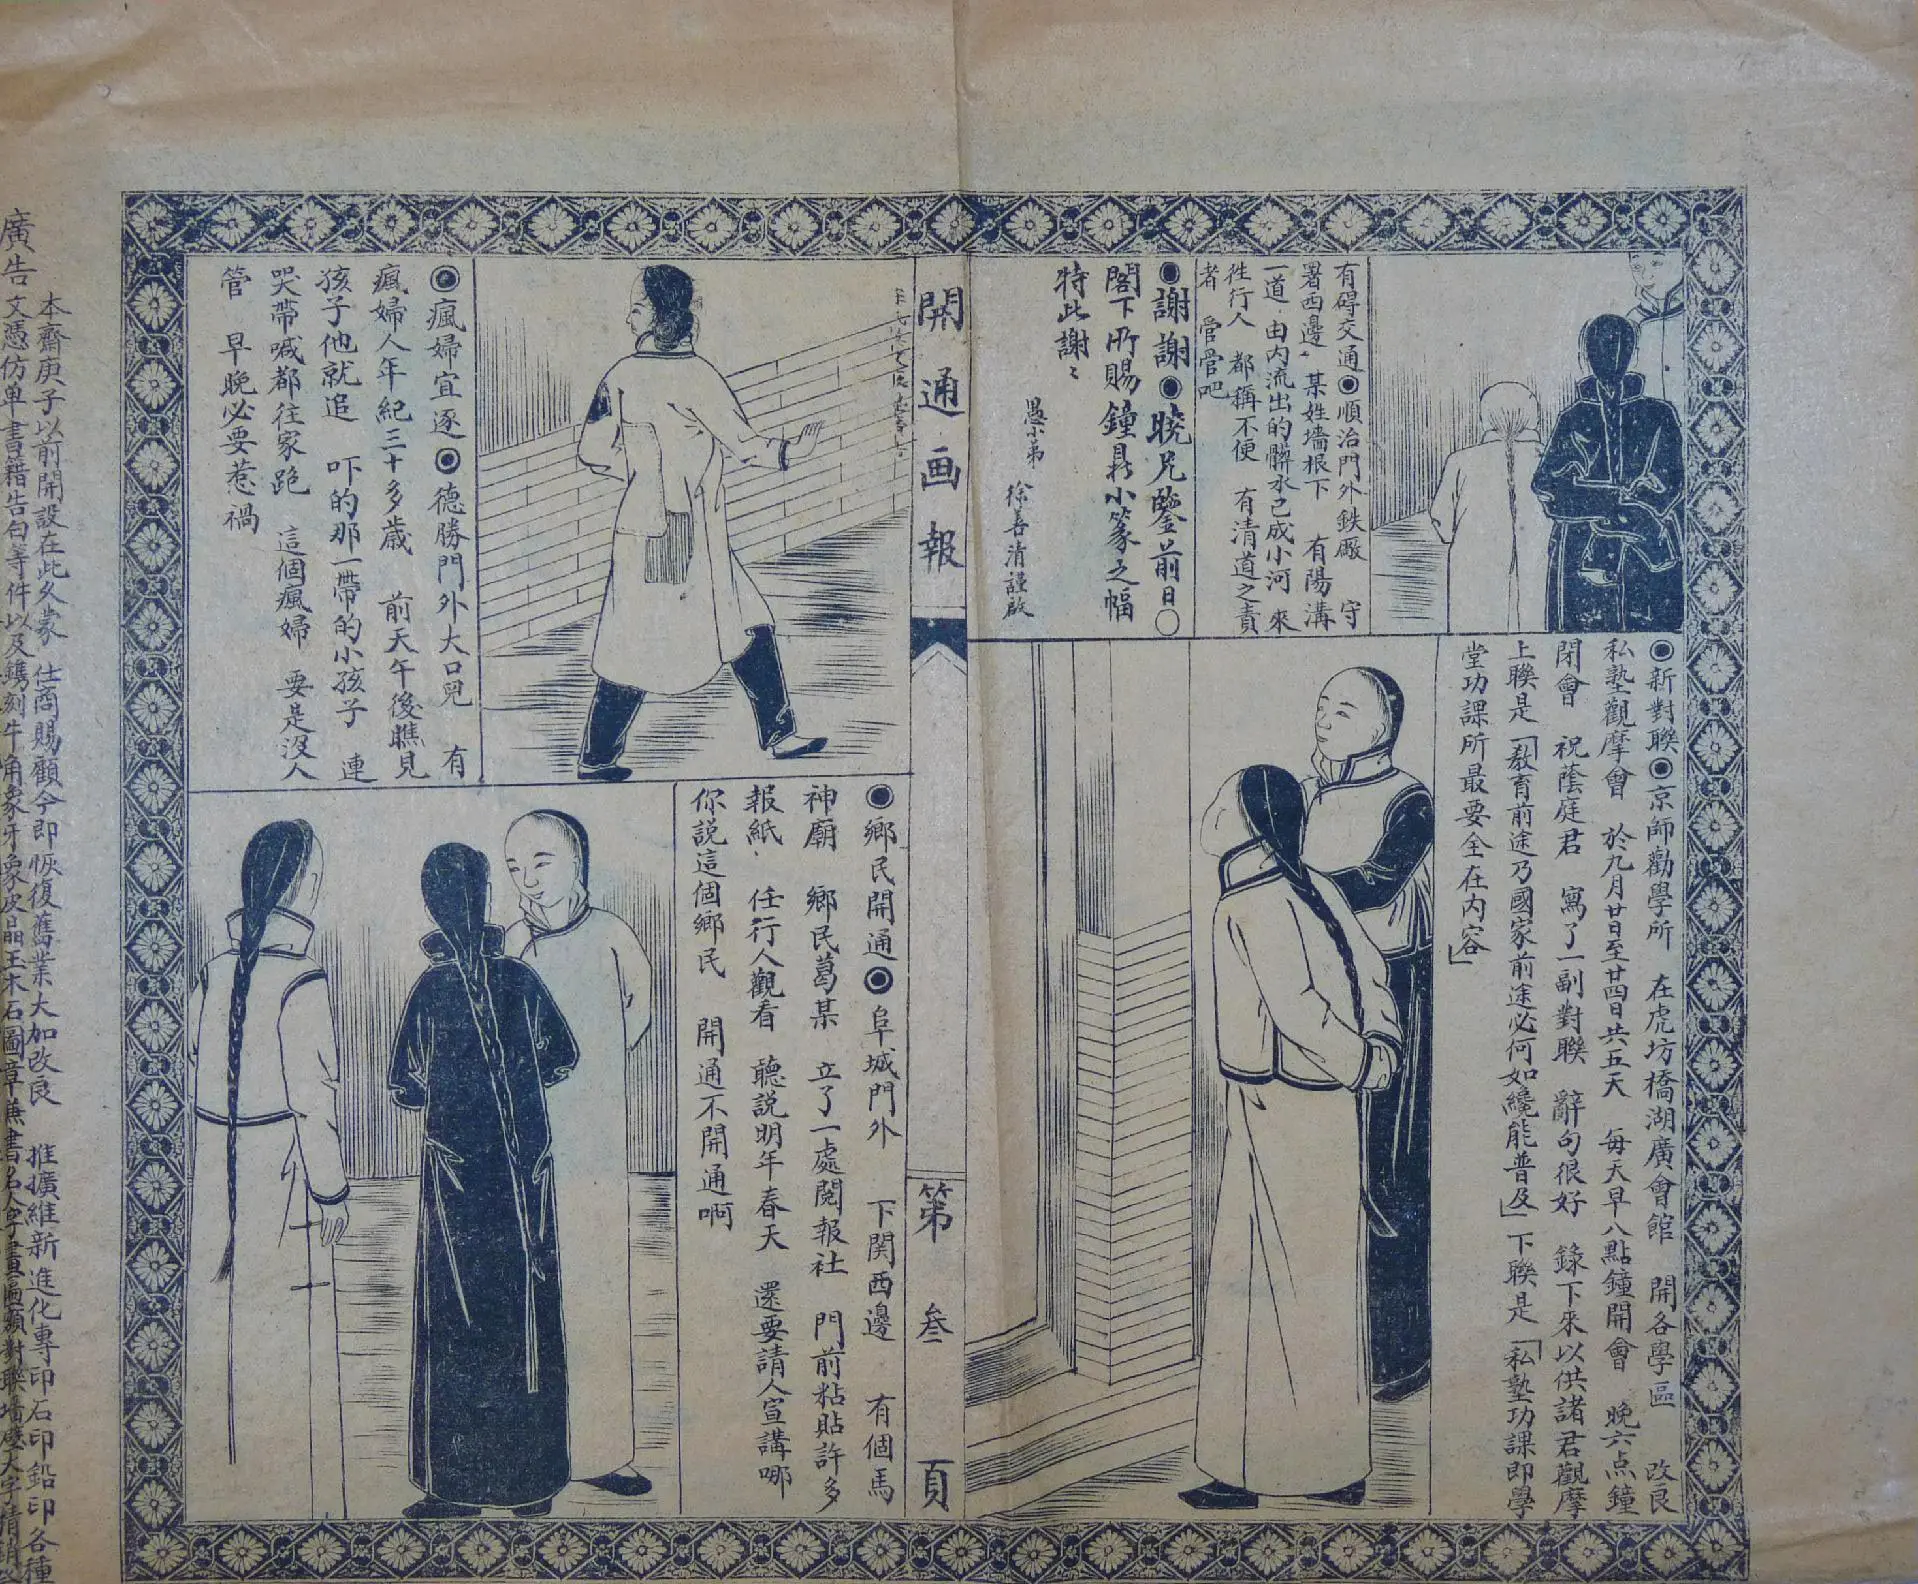 有碍交通◉順治門外鉄廠　守
署西邊、某姓墻根下　有陽溝
一道、由内流出的髒水已成小河　來
徃行人　都稱不便　有清道之責
者　管管吧
◉謝謝◉曉兄鑒前日○
閣下所賜鐘鼎小篆之幅
特此謝〻
愚小弟　徐善清謹啟
◉新對聯◉京師勸學所　在虎坊橋湖廣會館　開各學區　改良
私塾觀摩會　於九月廿日至廿四日共五天　每天早八點鐘開會　晚六点鐘
閉會　祝蔭庭君　寫了一副對聯　辭句很好　錄下來以供諸君觀摩
上聯是「教育前途乃國家前途必何如纔能普及」下聯是「私塾功課即學
堂功課所最要全在内容」
開通画報
第叁頁
◉瘋婦宜逐◉德勝門外大口兒　有
瘋婦人年紀三十多歲　前天午後瞧見
孩子他就追　吓的那一帶的小孩子　連
哭帶喊都往家跑　這個瘋婦　要是沒人
管　早晚必要惹禍
◉鄉民開通◉阜城門外　下関西邊　有個馬
神廟　鄉民葛某　立了一處閱報社　門前粘貼許多
報紙、任行人觀看　聽説明年春天　還要請人宣講哪
你説這個鄉民　開通不開通啊
廣告
本齋庚子以前開設在此久蒙　仕商賜顧今即恢復舊業大加改良　推擴維新進化專印石印鉛印各種
文憑仿單書籍告白等件以及鐫刻牛角象牙象皮晶玉木石圖章兼書名人字畫匾額對聯墻壁大字精